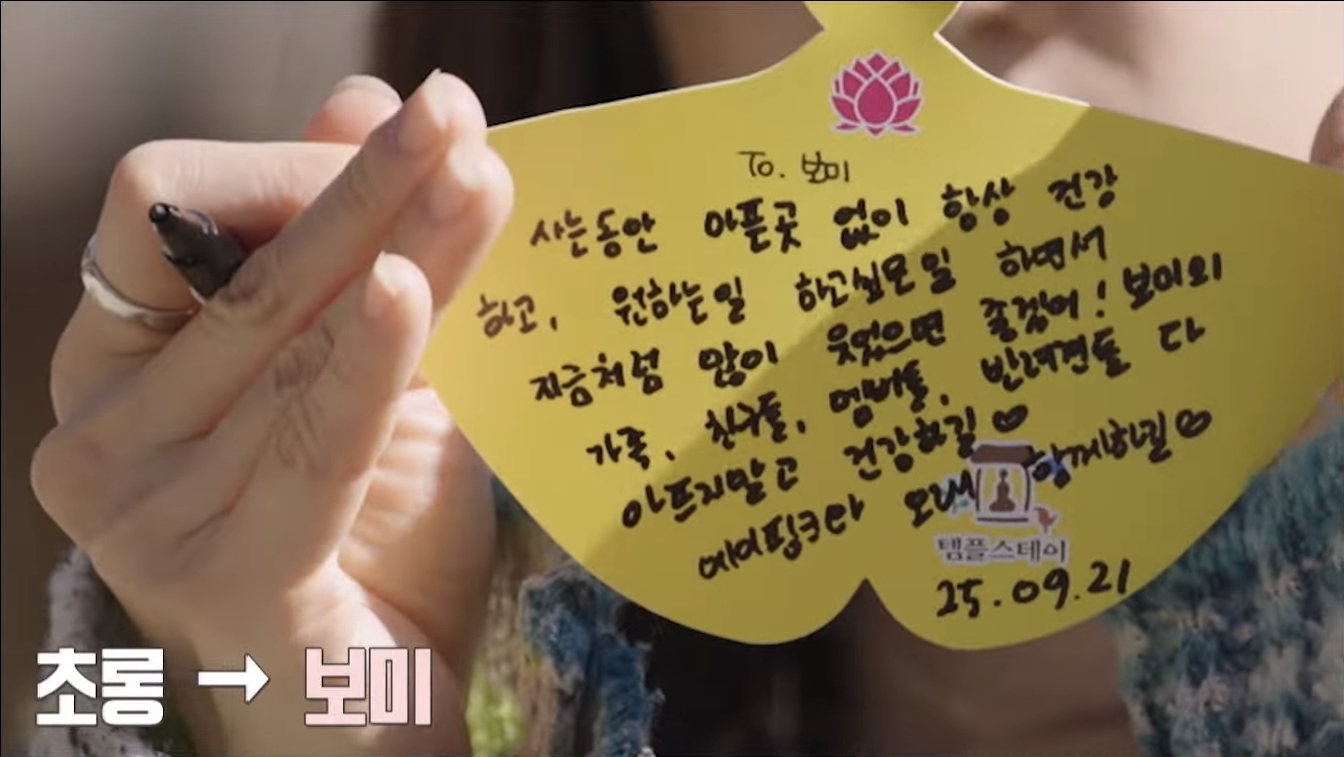 To. 보미
사는동안 아픈곳 없이 항상 건강
하고, 원하는일 하고싶은일 하면서
지금처럼 많이 웃었으면 좋겠어! 보미의
가족, 친구들, 멤버들, 반려견들 다
아프지말고 건강하길♡
에이핑크랑 오래 함께하길♡
템플스테이
25.09.21
초롱 → 보미